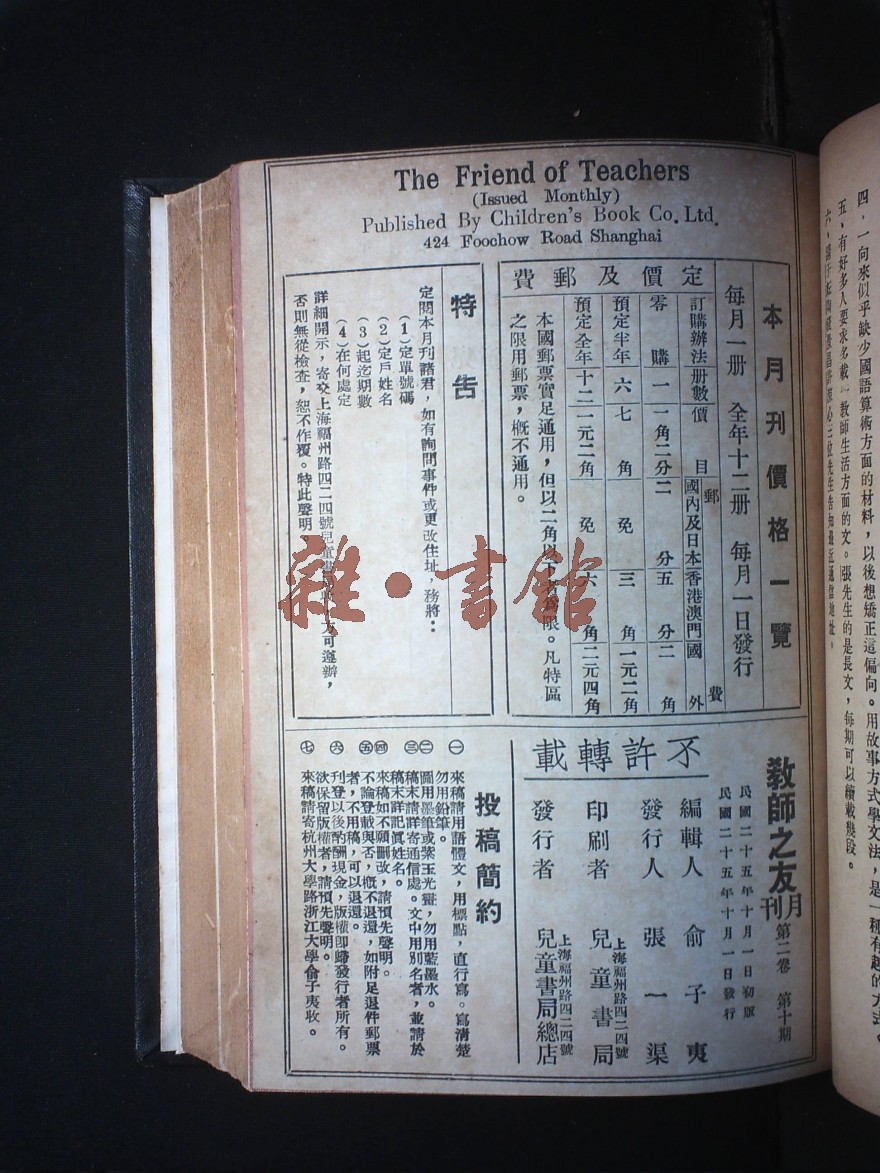 The Friend of Teachers
(Issued Monthly)
Published By Children's Book Co. Ltd.
424 Foochow Road Shanghai
本月刊價格一覽
每月一册 全年十二册 每月一日發行
定價及郵費
訂購辦法 册數 價目 郵費 國內及日本 香港澳門 國外
零購 一 一角二分 二分 五分 二角
預定半年 六 七角 免 三角 一元二角
預定全年 十二 一元二角 免 六角 二元四角
本國郵票實足通用，但以二角以下者為限。凡特區
之限用郵票，概不通用。
特告
定閱本月刊諸君，如有詢問事件或更改住址，務將：
(1)定單號碼
(2)定戶姓名
(3)起迄期數
(4)在何處定
詳細開示，寄交上海福州路四二四號兒童書局，方可遵辦，
否則無從檢查，恕不作覆。特此聲明
雜·書館
教師之友月刊 第二卷 第十期
民國二十五年十月一日初版
民國二十五年十月一日發行
編輯人 俞子夷
發行人 張一渠
印刷者 兒童書局
上海福州路四二四號
發行者 兒童書局總店
上海福州路四二四號
不許轉載
投稿簡約
㊀ 來稿請用語體文，用標點，直行寫。寫清楚
勿用鉛筆。
㊁ 圖用墨筆或紫玉光畫，勿用藍墨水。
㊂ 稿末請詳寄通信處。文中用別名者，並請於
稿末詳記眞姓名。
㊃ 來稿如不願刪改，請預先聲明。
㊄ 不論登載與否，概不退還，如附足退件郵票
者，不用稿，可以退還。
㊅ 刊登以後酌酬現金，版權卽歸發行者所有。
欲保留版權者，請預先聲明。
㊆ 來稿請寄杭州大學路浙江大學俞子夷收。
四，一向來似乎缺少國語算術方面的材料，以後想矯正這偏向。用故事方式學文法，是一種有趣的方式。
五，有好多人要求多載「教師生活方面的文。張先生的是長文，每期可以續載幾段。